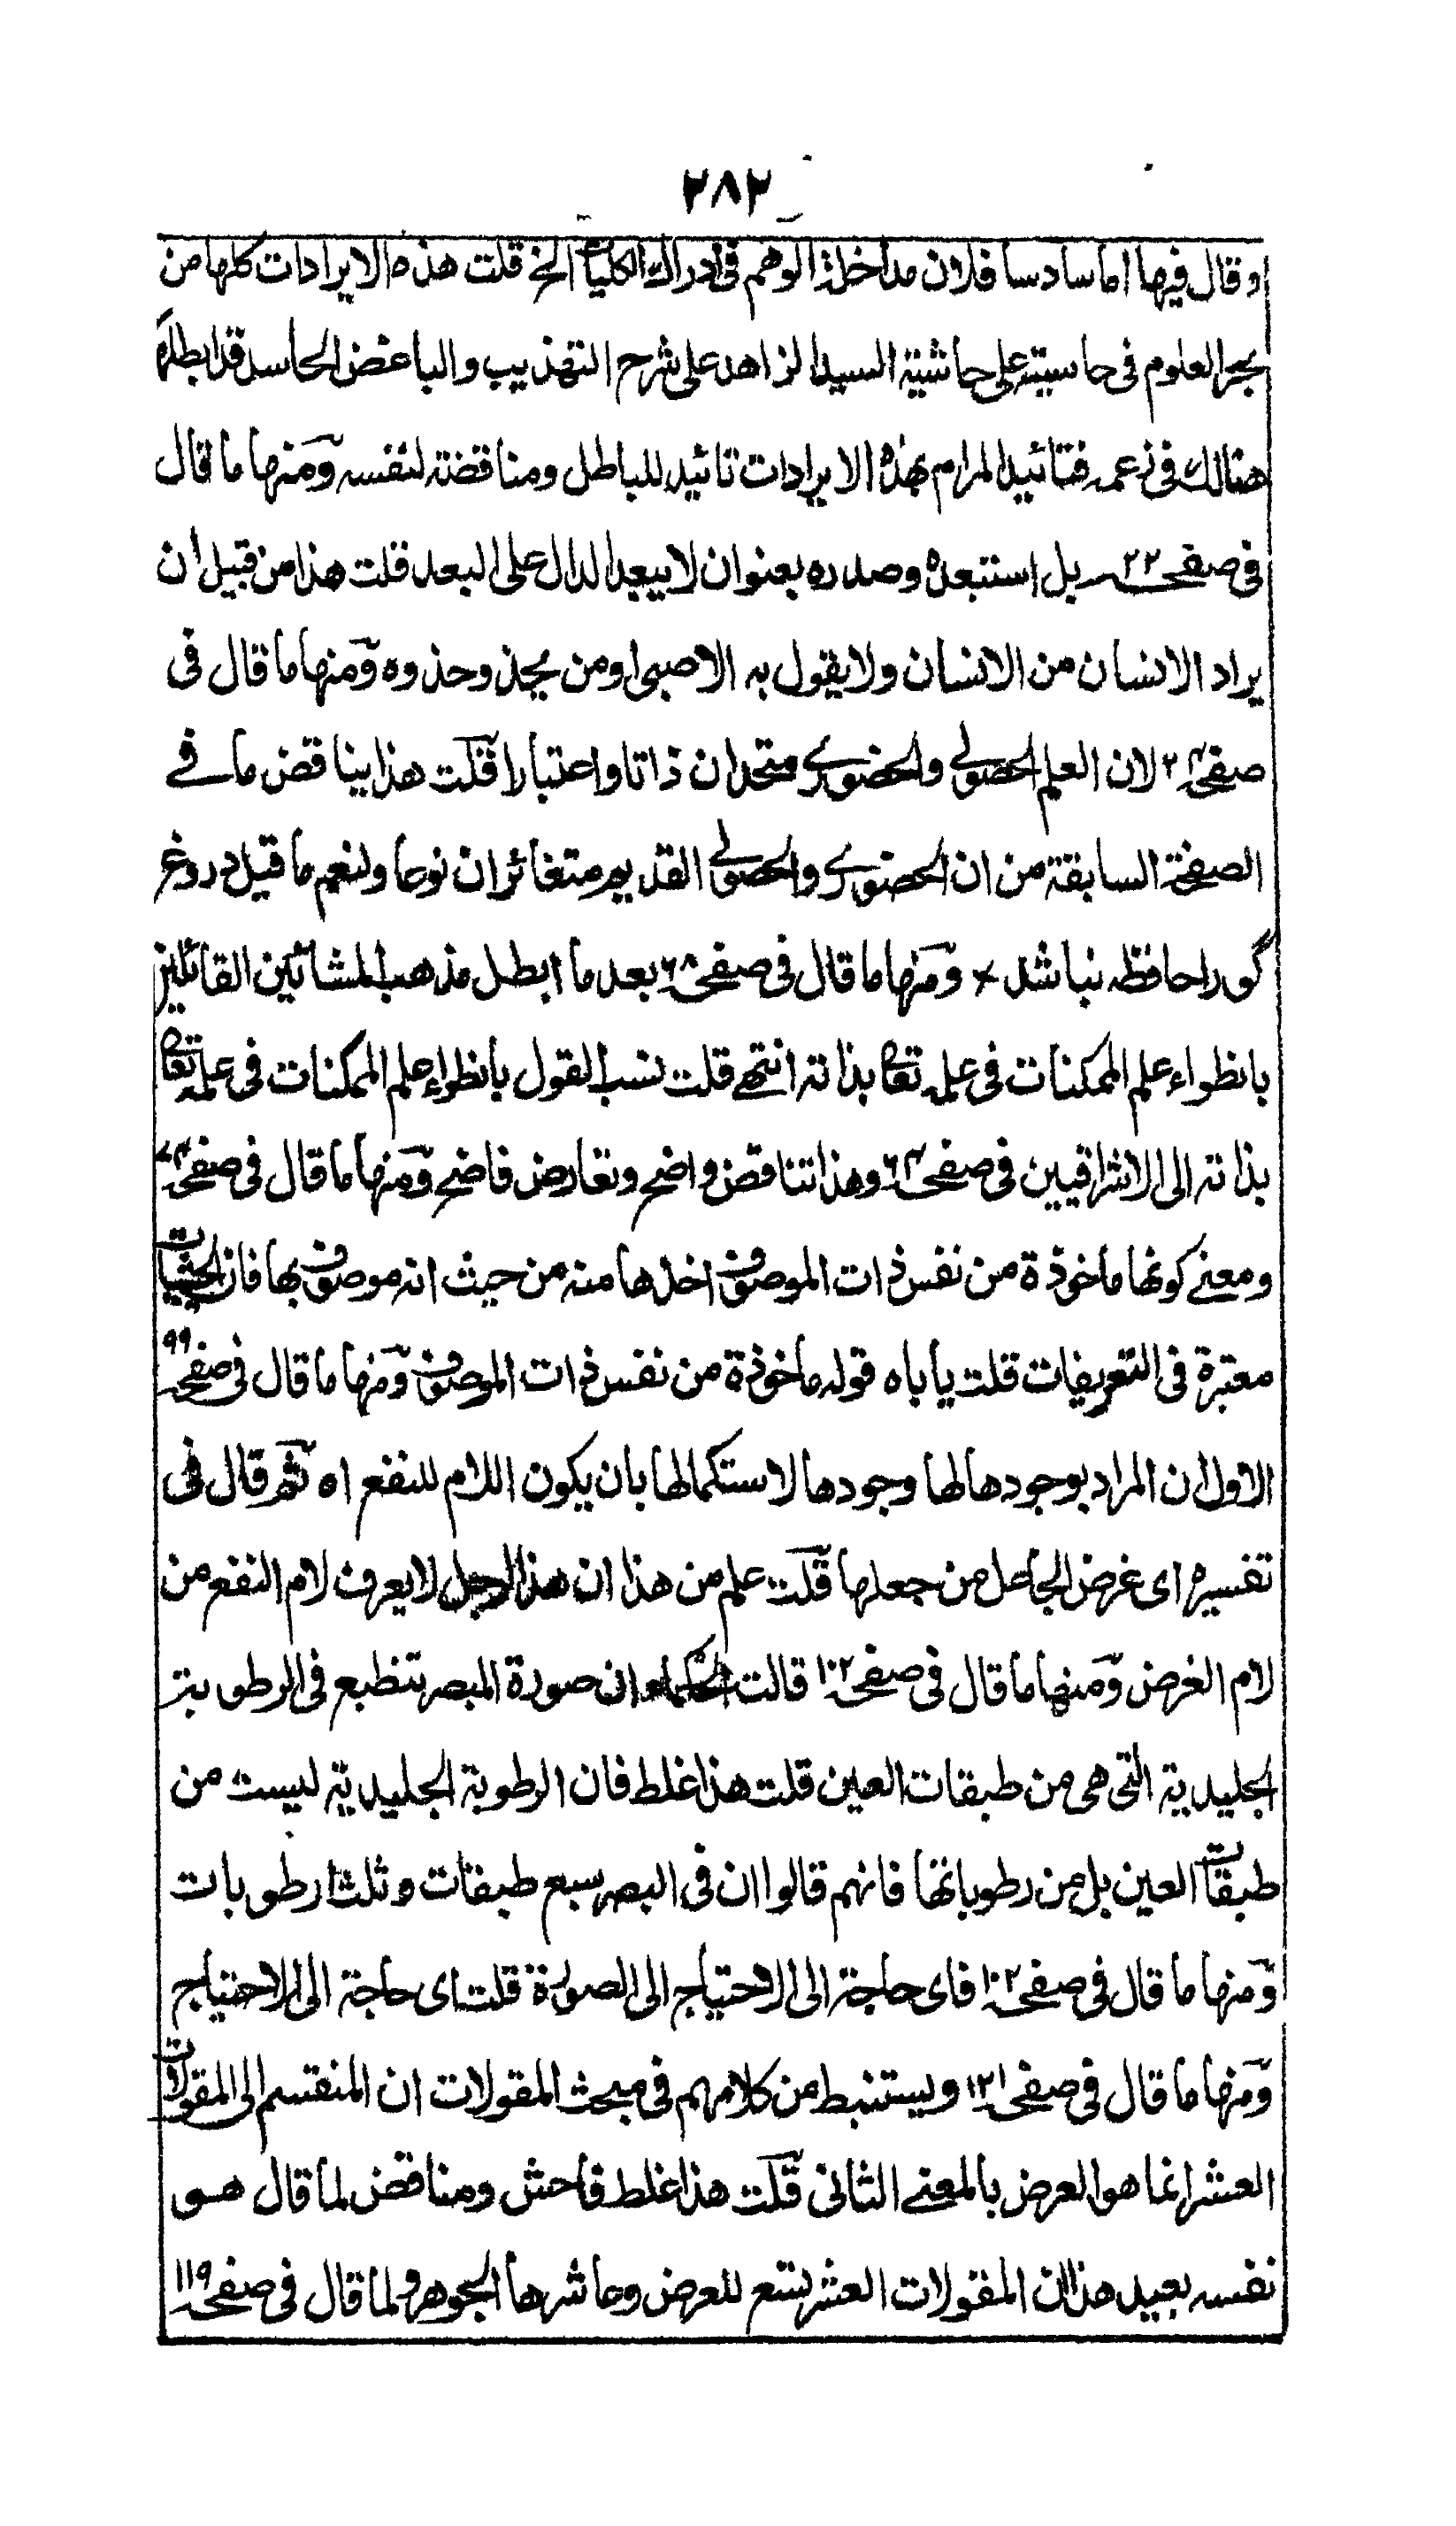 ٢٨٢
وقال فيها اما سادسا فلان مداخلة الوهم في ادراك الكليات الخ قلت هذه الايرادات كلها من
بحر العلوم في حاشيته على حاشية السيد الزاهد على شرح التهذيب والباغض الحاسد قد ابطله
هنالك في زعمه فتائيد المرام بهذه الايرادات تائيد للباطل ومناقضة لنفسه ومنها ما قال
في صفحه ٢٢ بل استبعده وصدره بعنوان لا يبعد الدال على البعد قلت هذا من قبيل ان
يراد الانسان من الانسان ولا يقول به الا صبى او من يحذو حذوه ومنها ما قال في
صفحه لان العلم الحصولي والحضوري متحدان ذاتا واعتبارا قلت هذا يناقض ما في
الصفحة السابقة من ان الحضوري والحصولي القديم متغائران نوعا ولنعم ما قيل دروغ
گو را حافظه نباشد ومنها ما قال في صفحه ٦٨ بعد ما ابطل مذهب المشائين القائلين
بانطواء علم الممكنات في علمه تعا بذاته انتهى قلت نسب القول بانطواء علم الممكنات في علمه تعا
بذاته الى الاشراقيين في صفحه وهذا تناقض واضح وتعارض فاضح ومنها ما قال في صفحه
ومعنى كونها ماخوذة من نفس ذات الموصوف اخذها منه من حيث انه موصوف بها فان الحيثيات
معتبرة في التعريفات قلت ياباه قوله ماخوذة من نفس ذات الموصوف ومنها ما قال في صفحه ٩٩
الاول ان المراد بوجودها لها وجودها لاستكمالها بان يكون اللام للنفع اه ثم قال في
تفسيره اى غرض الجاعل من جعلها قلت علم من هذا ان هذا الرجل لا يعرف لام النفع من
لام الغرض ومنها ما قال في صفحه ١٠٢ قالت الحكماء ان صورة المبصر تنطبع في الرطوبة
الجليدية التي هي من طبقات العين قلت هذا غلط فان الرطوبة الجليدية ليست من
طبقات العين بل من رطوباتها فانهم قالوا ان في البصر سبع طبقات وثلث رطوبات
ومنها ما قال في صفحه ١٠٢ فاى حاجة الى الاحتياج الى الصورة قلت اى حاجة الى الاحتياج
ومنها ما قال في صفحه ١٢١ ويستنبط من كلامهم في مبحث المقولات ان المنقسم الى المقولات
العشر انما هو العرض بالمعنى الثاني قلت هذا غلط فاحش ومناقض لما قال هو
نفسه بعيد هذا ان المقولات العشر تسع للعرض وعاشرها الجوهر ولما قال في صفحه ١١٩